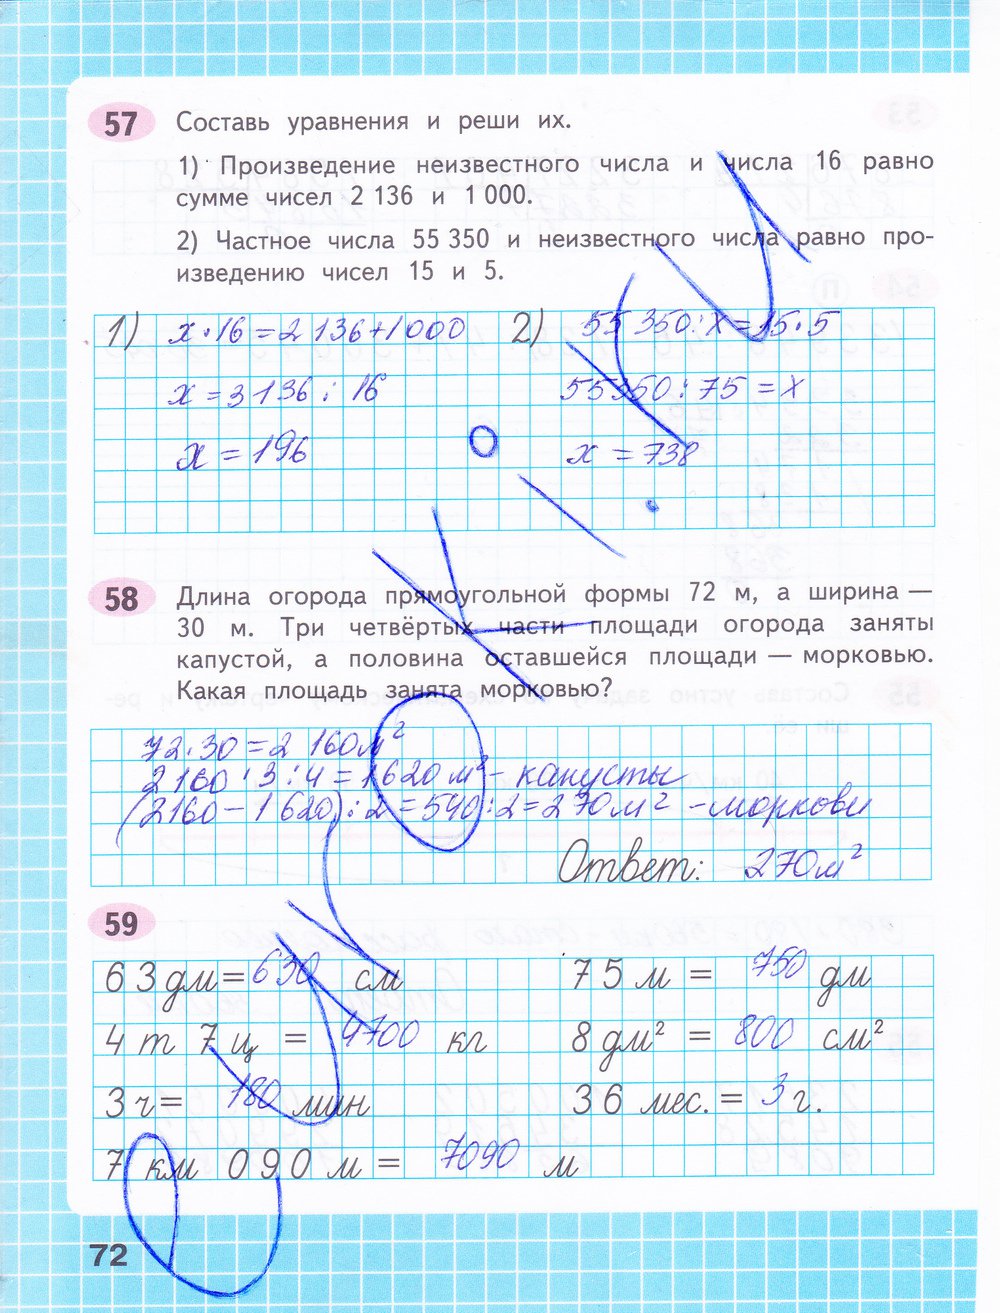 57 Составь уравнения и реши их.
1) Произведение неизвестного числа и числа 16 равно
сумме чисел 2 136 и 1 000.
2) Частное числа 55 350 и неизвестного числа равно про-
изведению чисел 15 и 5.
1) х·16=2 136+1000 2) 55 350:х=15·5
х=3136:16 55350:75=х
х=196 х=738
58 Длина огорода прямоугольной формы 72 м, а ширина —
30 м. Три четвёртых части площади огорода заняты
капустой, а половина оставшейся площади — морковью.
Какая площадь занята морковью?
72·30=2 160м²
2160·3:4=1620м²- капусты
(2160-1620):2=540:2=270м² -моркови
Ответ: 270м²
59
63дм=630 см 75м = 750 дм
4т 7ц = 4700 кг 8дм² = 800 см²
3ч= 180 мин 36 мес.= 3г.
7км 090м = 7090 м
72